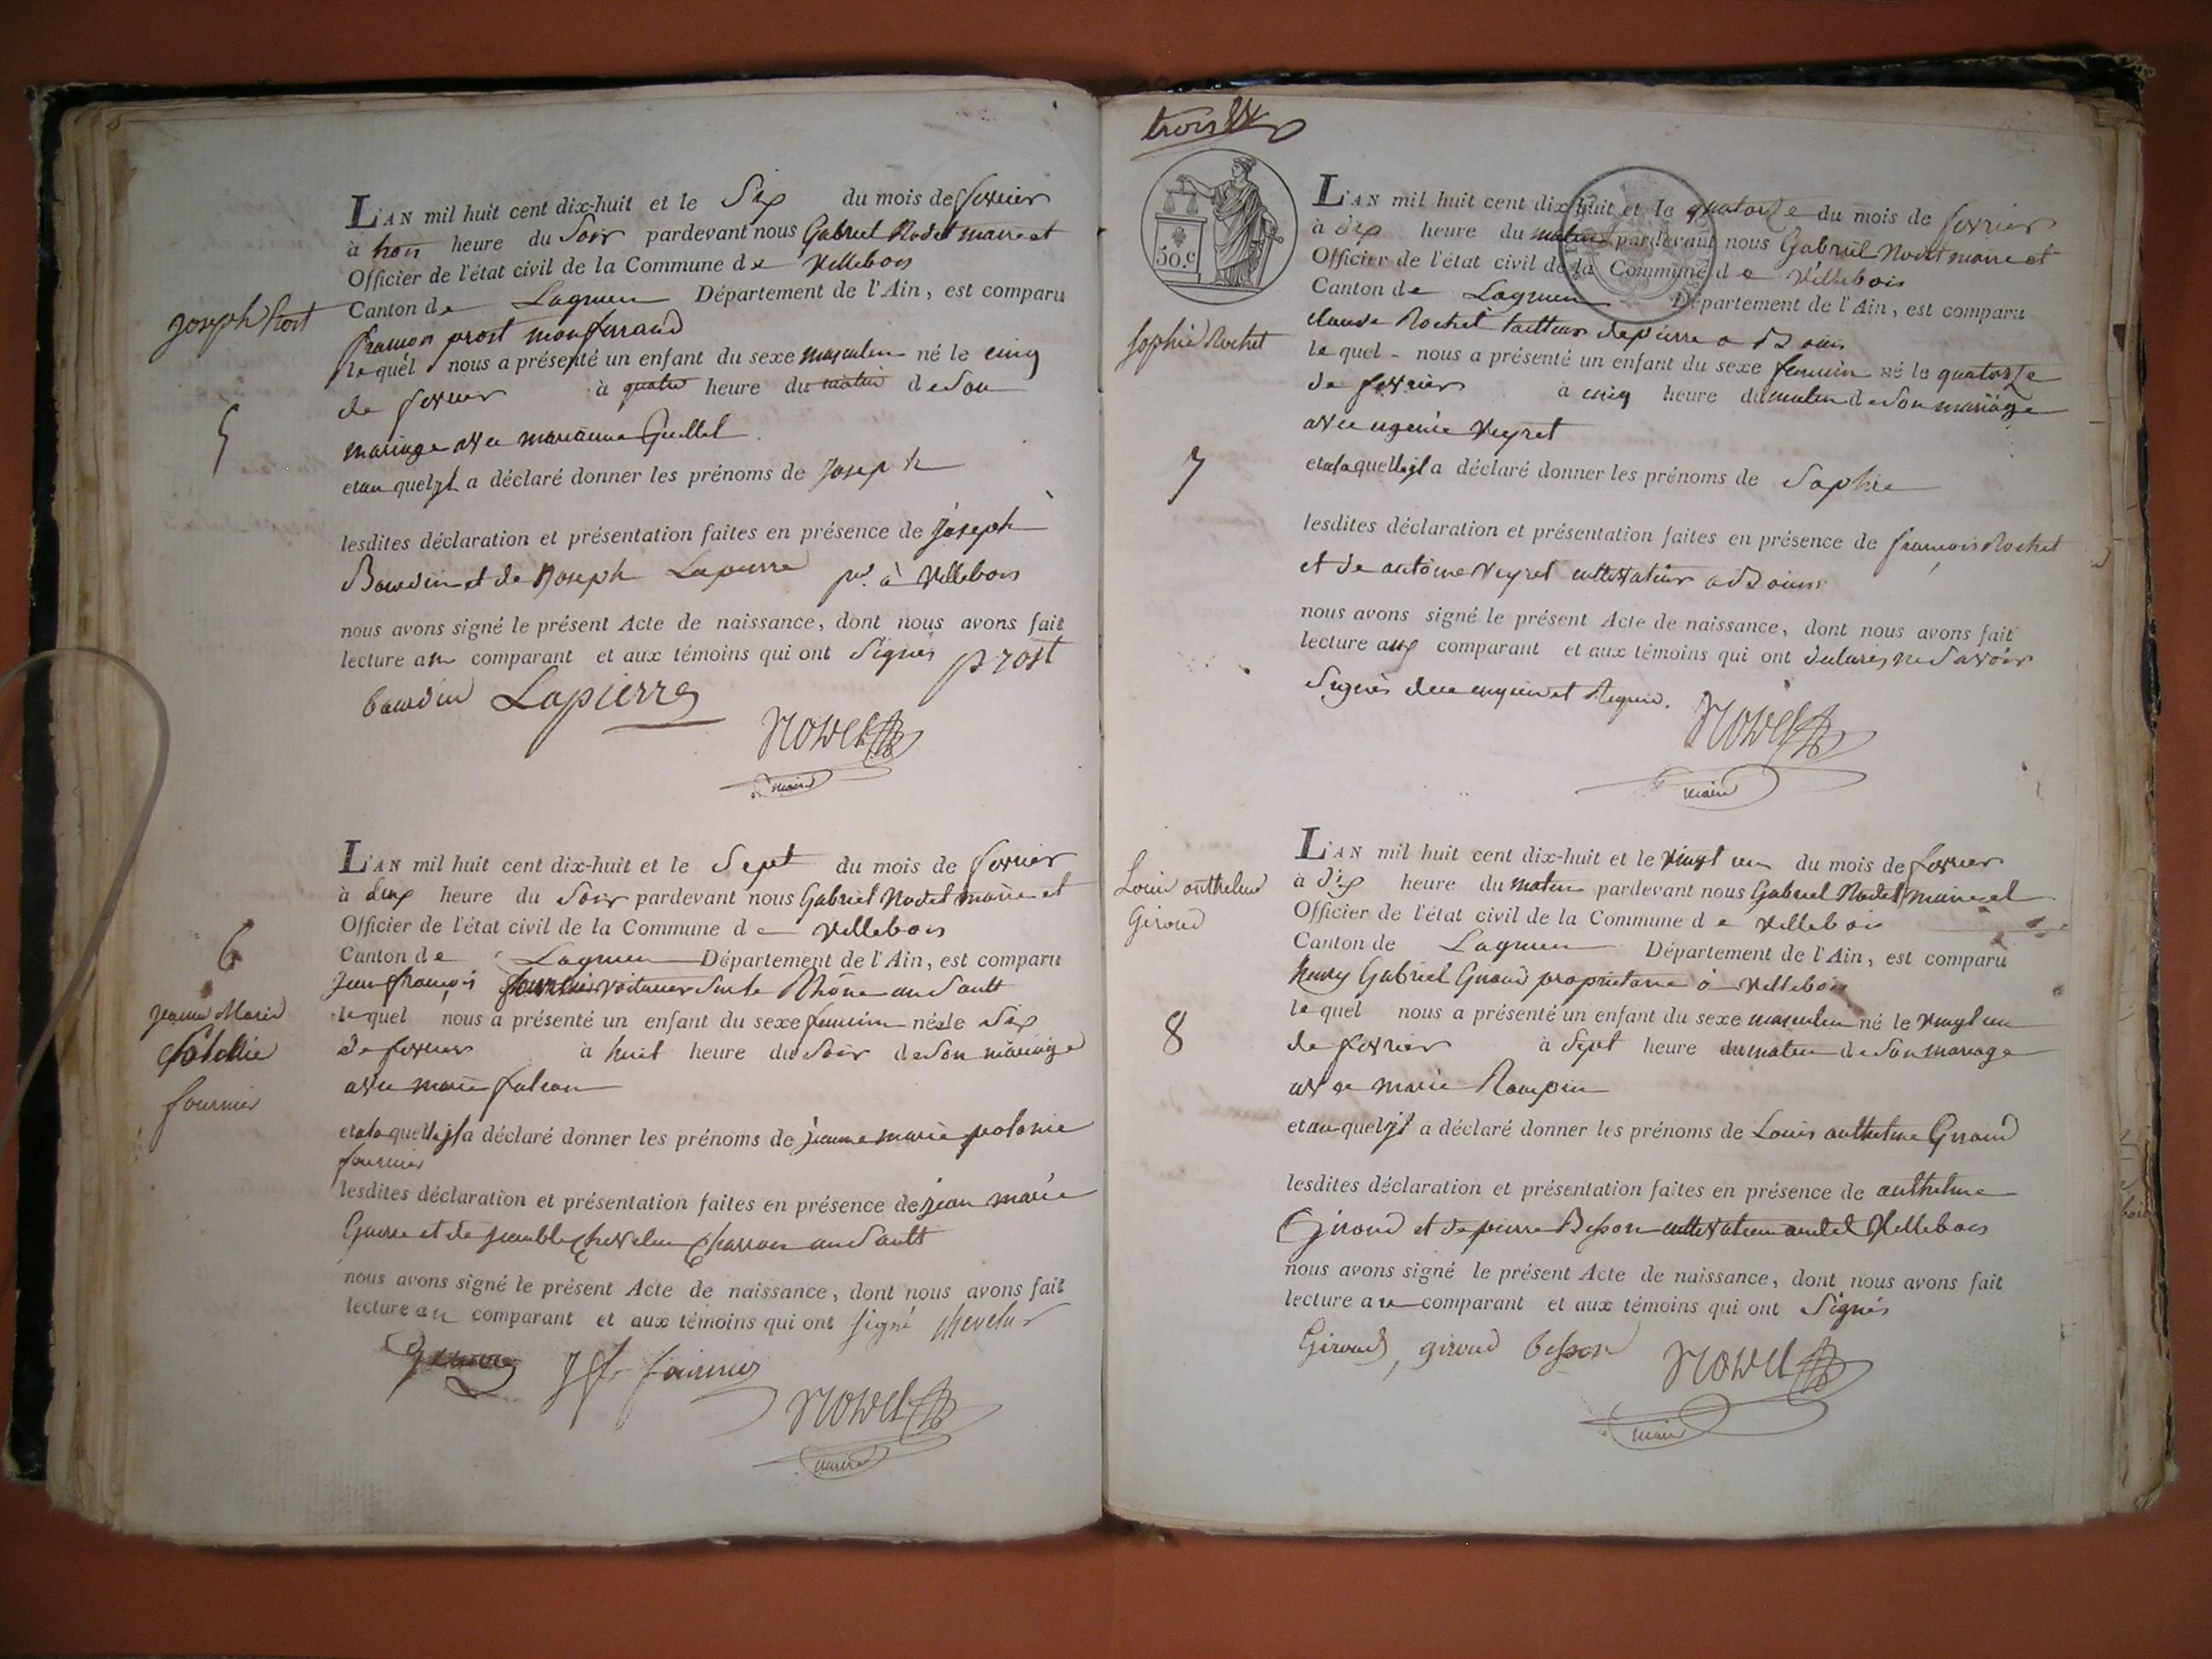 Joseph Prost
5
L'AN mil huit cent dix-huit et le Six du mois de fevrier
à trois heure du Soir pardevant nous Gabriel Nodet maire et
Officier de l'état civil de la Commune de Villebois
Canton de Lagnieu Département de l'Ain, est comparu
françois prost monferrand
lequel nous a présenté un enfant du sexe masculin né le cinq
de fevrier à quatre heure du matin de Son
mariage avec marianne Guillet
et auquel jl a déclaré donner les prénoms de Joseph
lesdites déclaration et présentation faites en présence de Joseph
Baudin et de Joseph Lapierre pre. à Villebois
nous avons signé le présent Acte de naissance, dont nous avons fait
lecture au comparant et aux témoins qui ont Signés prost
baudin Lapierre
Nodet
maire
6
jeanne Marie
fournier
L'AN mil huit cent dix-huit et le Sept du mois de fevrier
à deux heure du Soir pardevant nous Gabriel Nodet maire et
Officier de l'état civil de la Commune de Villebois
Canton de Lagnieu Département de l'Ain, est comparu
jean françois fournier voiturier Sur le Rhône au Sault
lequel nous a présenté un enfant du sexe feminin née le Six
de fevrier à huit heure du Soir de Son mariage
avec marie falcon
et a laquelle jl a déclaré donner les prénoms de jeanne marie polonie
fournier
lesdites déclaration et présentation faites en présence de jean marie
Guerre et de chevelu charron au Sault
nous avons signé le présent Acte de naissance, dont nous avons fait
lecture au comparant et aux témoins qui ont signé chevelu
J f. fournier
Nodet
maire
trois
50.c
Sophie Rochet
7
L'AN mil huit cent dix-huit et le quatorze du mois de fevrier
à dix heure du matin pardevant nous Gabriel Nodet maire et
Officier de l'état civil de la Commune de Villebois
Canton de Lagnieu Département de l'Ain, est comparu
claude Rochet tailleur de pierre
lequel nous a présenté un enfant du sexe feminin né le quatorze
de fevrier à cinq heure du matin de Son mariage
avec ugenie Veyret
et a laquelle jl a déclaré donner les prénoms de Sophie
lesdites déclaration et présentation faites en présence de françois Rochet
et de antoine Veyret cultivateur
nous avons signé le présent Acte de naissance, dont nous avons fait
lecture aux comparant et aux témoins qui ont declarés ne Savoir
Signés de ce enquis et Requis.
Nodet
maire
Louis anthelme
Giroud
8
L'AN mil huit cent dix-huit et le vingt un du mois de fevrier
à dix heure du matin pardevant nous Gabriel Nodet maire et
Officier de l'état civil de la Commune de Villebois
Canton de Lagnieu Département de l'Ain, est comparu
henry Gabriel Giroud proprietaire à Villebois
lequel nous a présenté un enfant du sexe masculin né le vingt un
de fevrier à Sept heure du matin de Son mariage
avec marie Rampin
et auquel jl a déclaré donner les prénoms de Louis anthelme Giroud
lesdites déclaration et présentation faites en présence de anthelme
Giroud et de pierre Besson cultivateur Villebois
nous avons signé le présent Acte de naissance, dont nous avons fait
lecture au comparant et aux témoins qui ont Signés
Giroud, giroud besson Nodet
maire